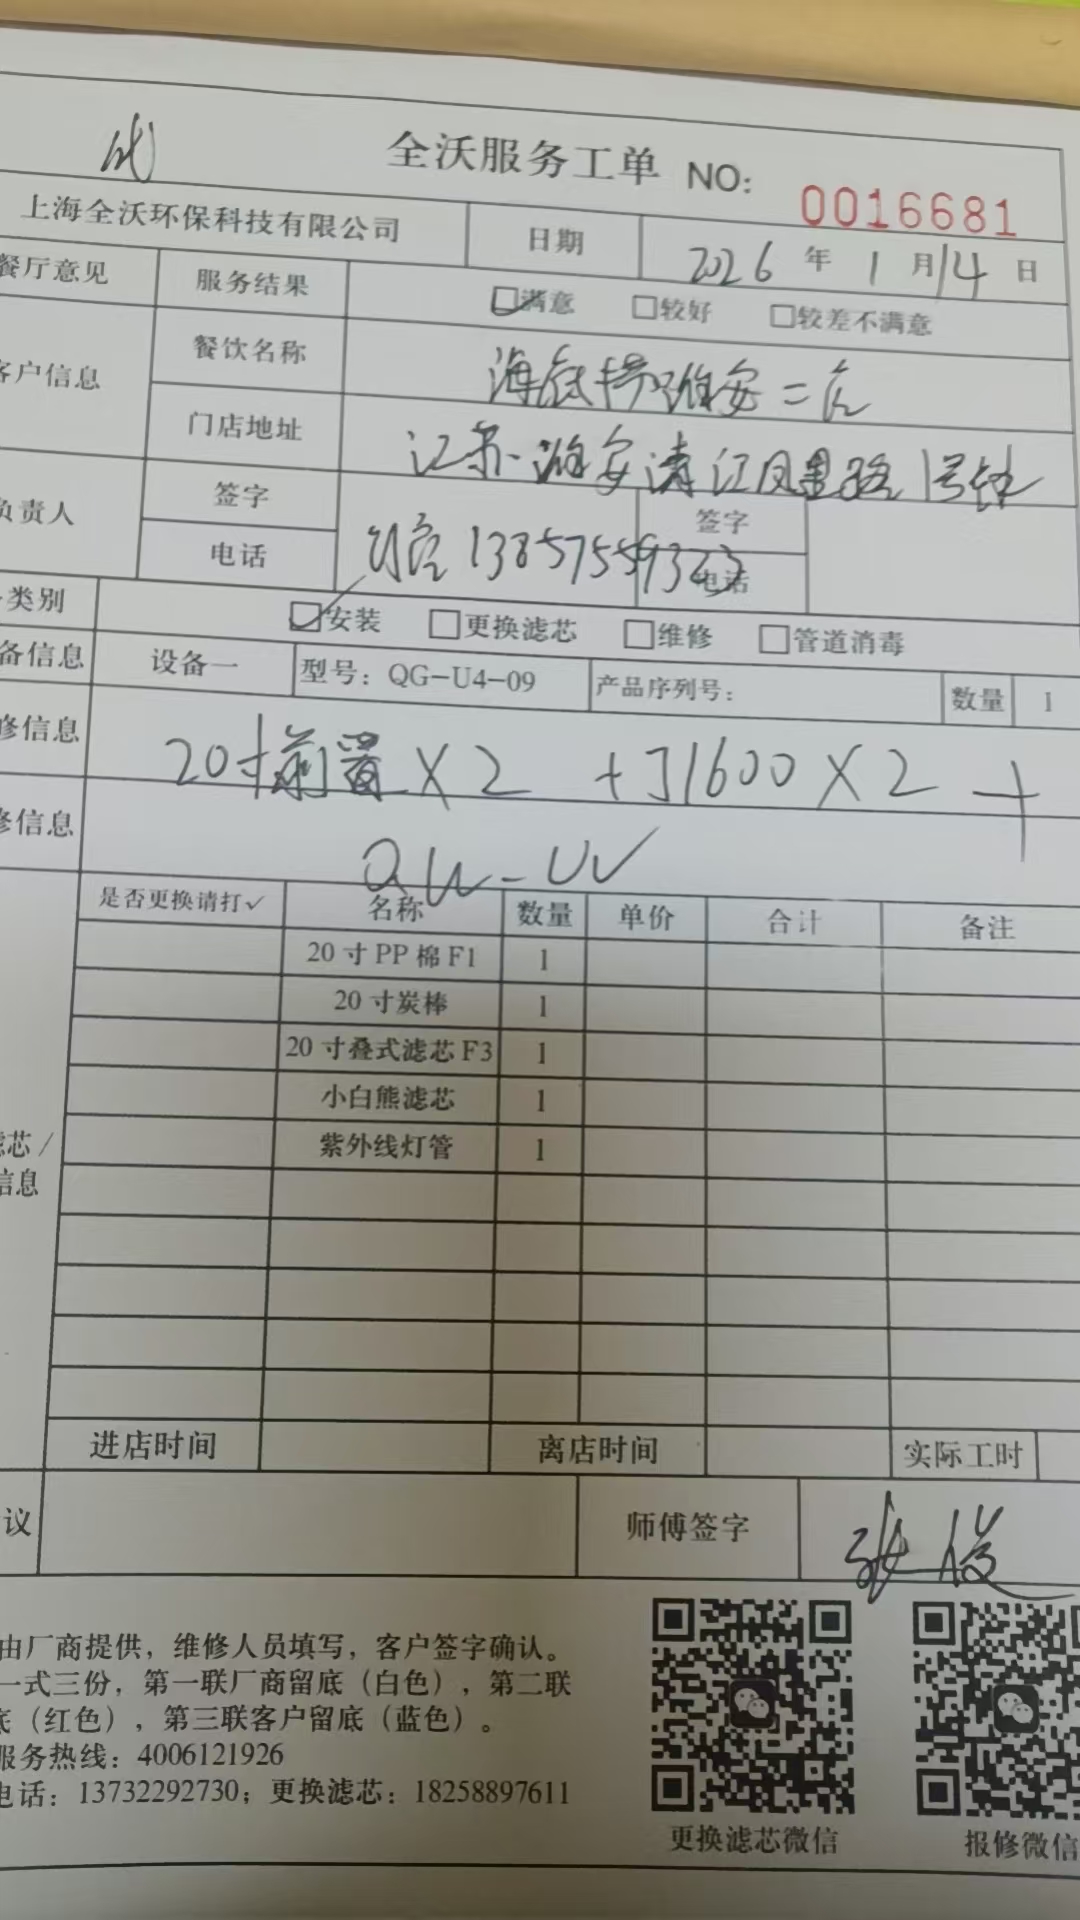 全沃服务工单 NO: 0016681
上海全沃环保科技有限公司 日期 2026 年 1 月 14 日
餐厅意见 服务结果 ☑满意 □较好 □较差不满意
客户信息 餐饮名称 海底捞淮安二店
门店地址 江苏淮安清江凤里路1号
负责人 签字 签字
电话 13857559323 电话
类别 ☑安装 □更换滤芯 □维修 □管道消毒
备信息 设备一 型号：QG-U4-09 产品序列号： 数量 1
修信息 20寸前置X2 +J1600X2 +
修信息 QW-UV
是否更换请打✓ 名称 数量 单价 合计 备注
20寸PP棉F1 1
20寸炭棒 1
20寸叠式滤芯F3 1
小白熊滤芯 1
紫外线灯管 1
滤芯/
信息
进店时间 离店时间 实际工时
议 师傅签字 张俊
由厂商提供，维修人员填写，客户签字确认。
一式三份，第一联厂商留底（白色），第二联
底（红色），第三联客户留底（蓝色）。
服务热线：4006121926
电话：13732292730；更换滤芯：18258897611
更换滤芯微信 报修微信